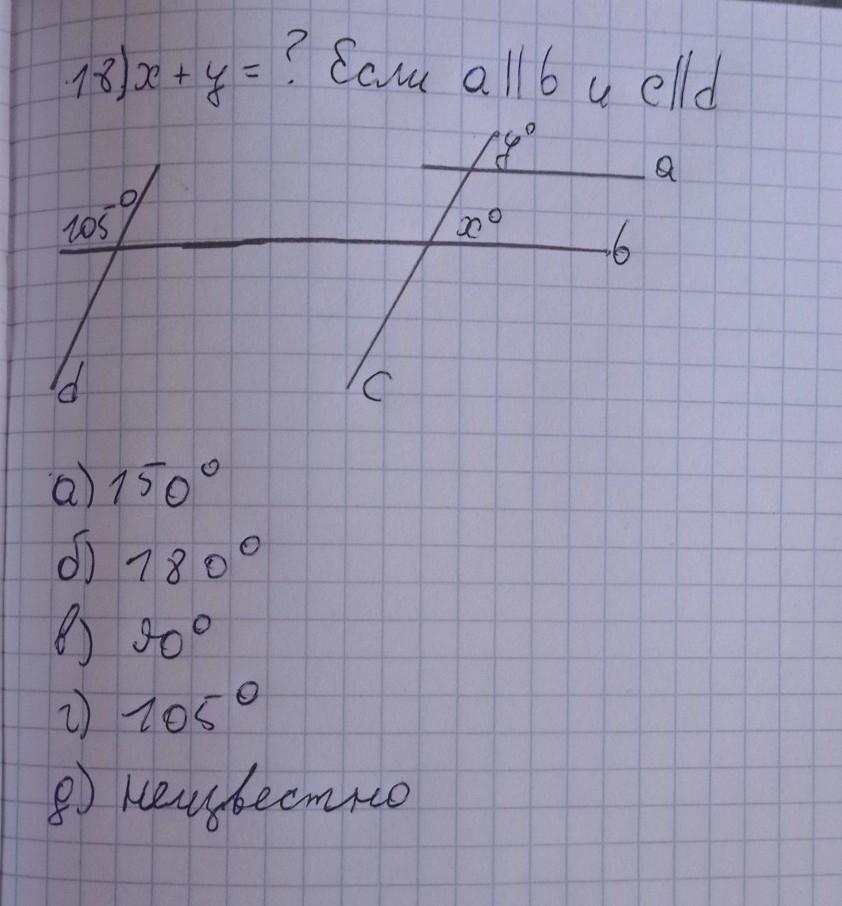 18) x + y = ? Если a || b и c || d
y°
a
105°
x°
b
d
c
а) 150°
б) 180°
в) 90°
г) 105°
д) неизвестно